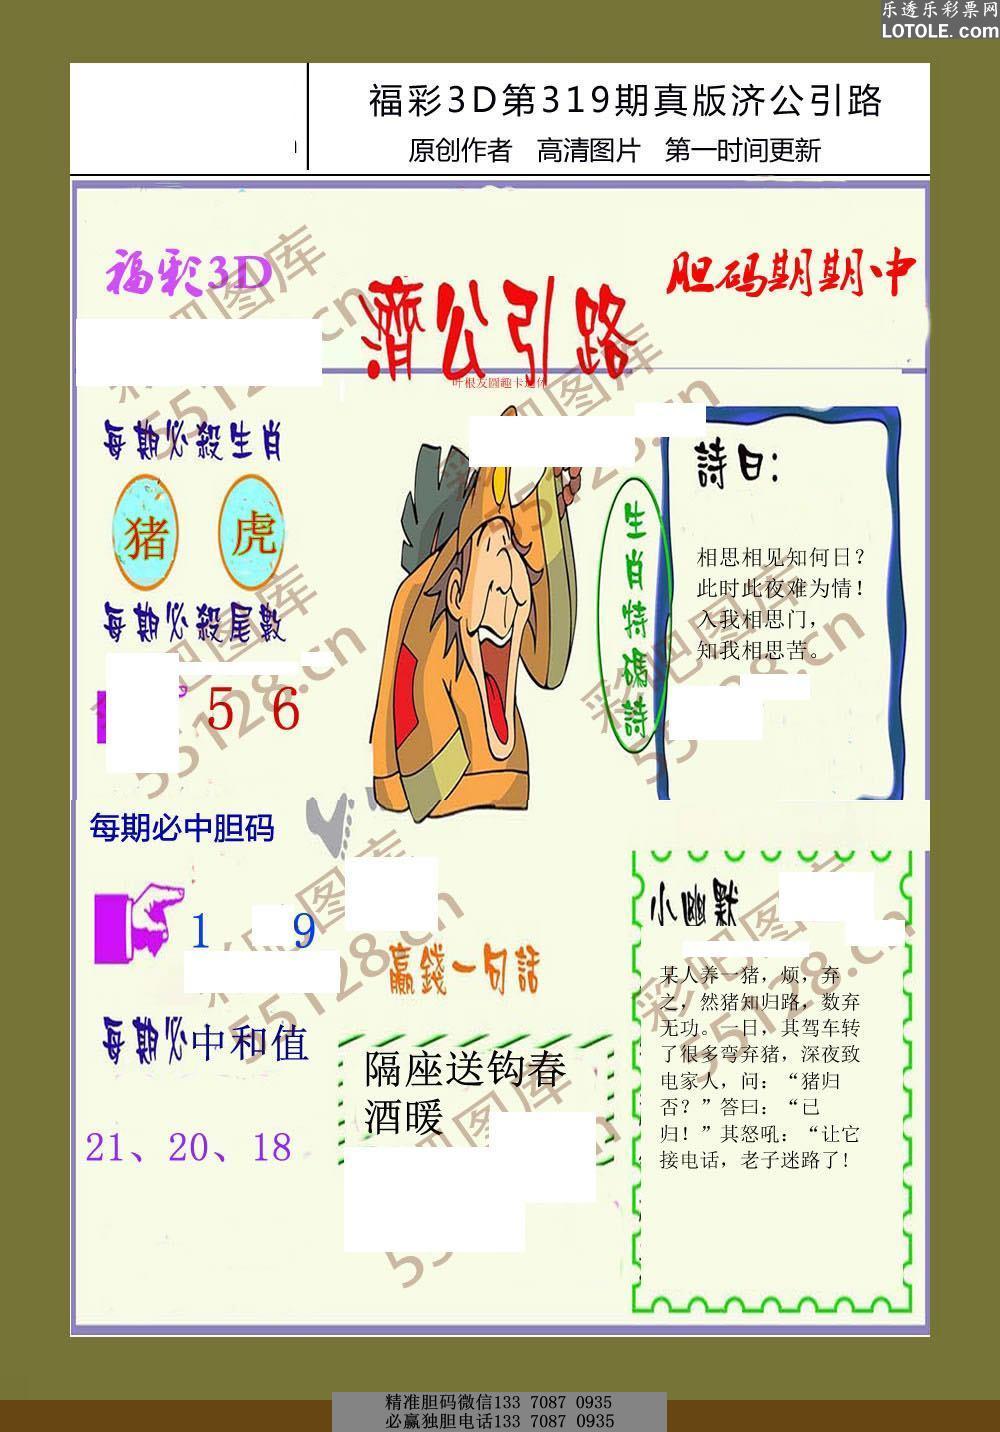 乐透乐彩票网
LOTOLE.com
福彩3D第319期真版济公引路
原创作者 高清图片 第一时间更新
福彩3D
胆码期期中
濟公引路
叶根友圆趣卡通体
每期必殺生肖
猪 虎
每期必殺尾數
5 6
生肖特碼詩
詩曰：
相思相见知何日？
此时此夜难为情！
入我相思门，
知我相思苦。
每期必中胆码
1 9
每期必中和值
21、20、18
赢錢一句話
隔座送钩春
酒暖
小幽默
某人养一猪，烦，弃
之，然猪知归路，数弃
无功。一日，其驾车转
了很多弯弃猪，深夜致
电家人，问：“猪归
否？”答曰：“已
归！”其怒吼：“让它
接电话，老子迷路了!
彩吧图库
55128.cn
彩吧图库
55128.cn
彩吧图库
55128.cn
彩吧图库
55128.cn
彩吧图库
55128.cn
彩吧图库
55128.cn
精准胆码微信133 7087 0935
必赢独胆电话133 7087 0935